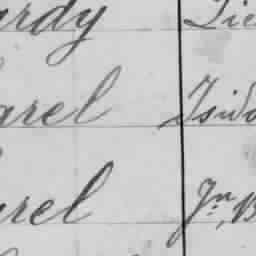 ardy Die
arel Isido
arel Jn, B